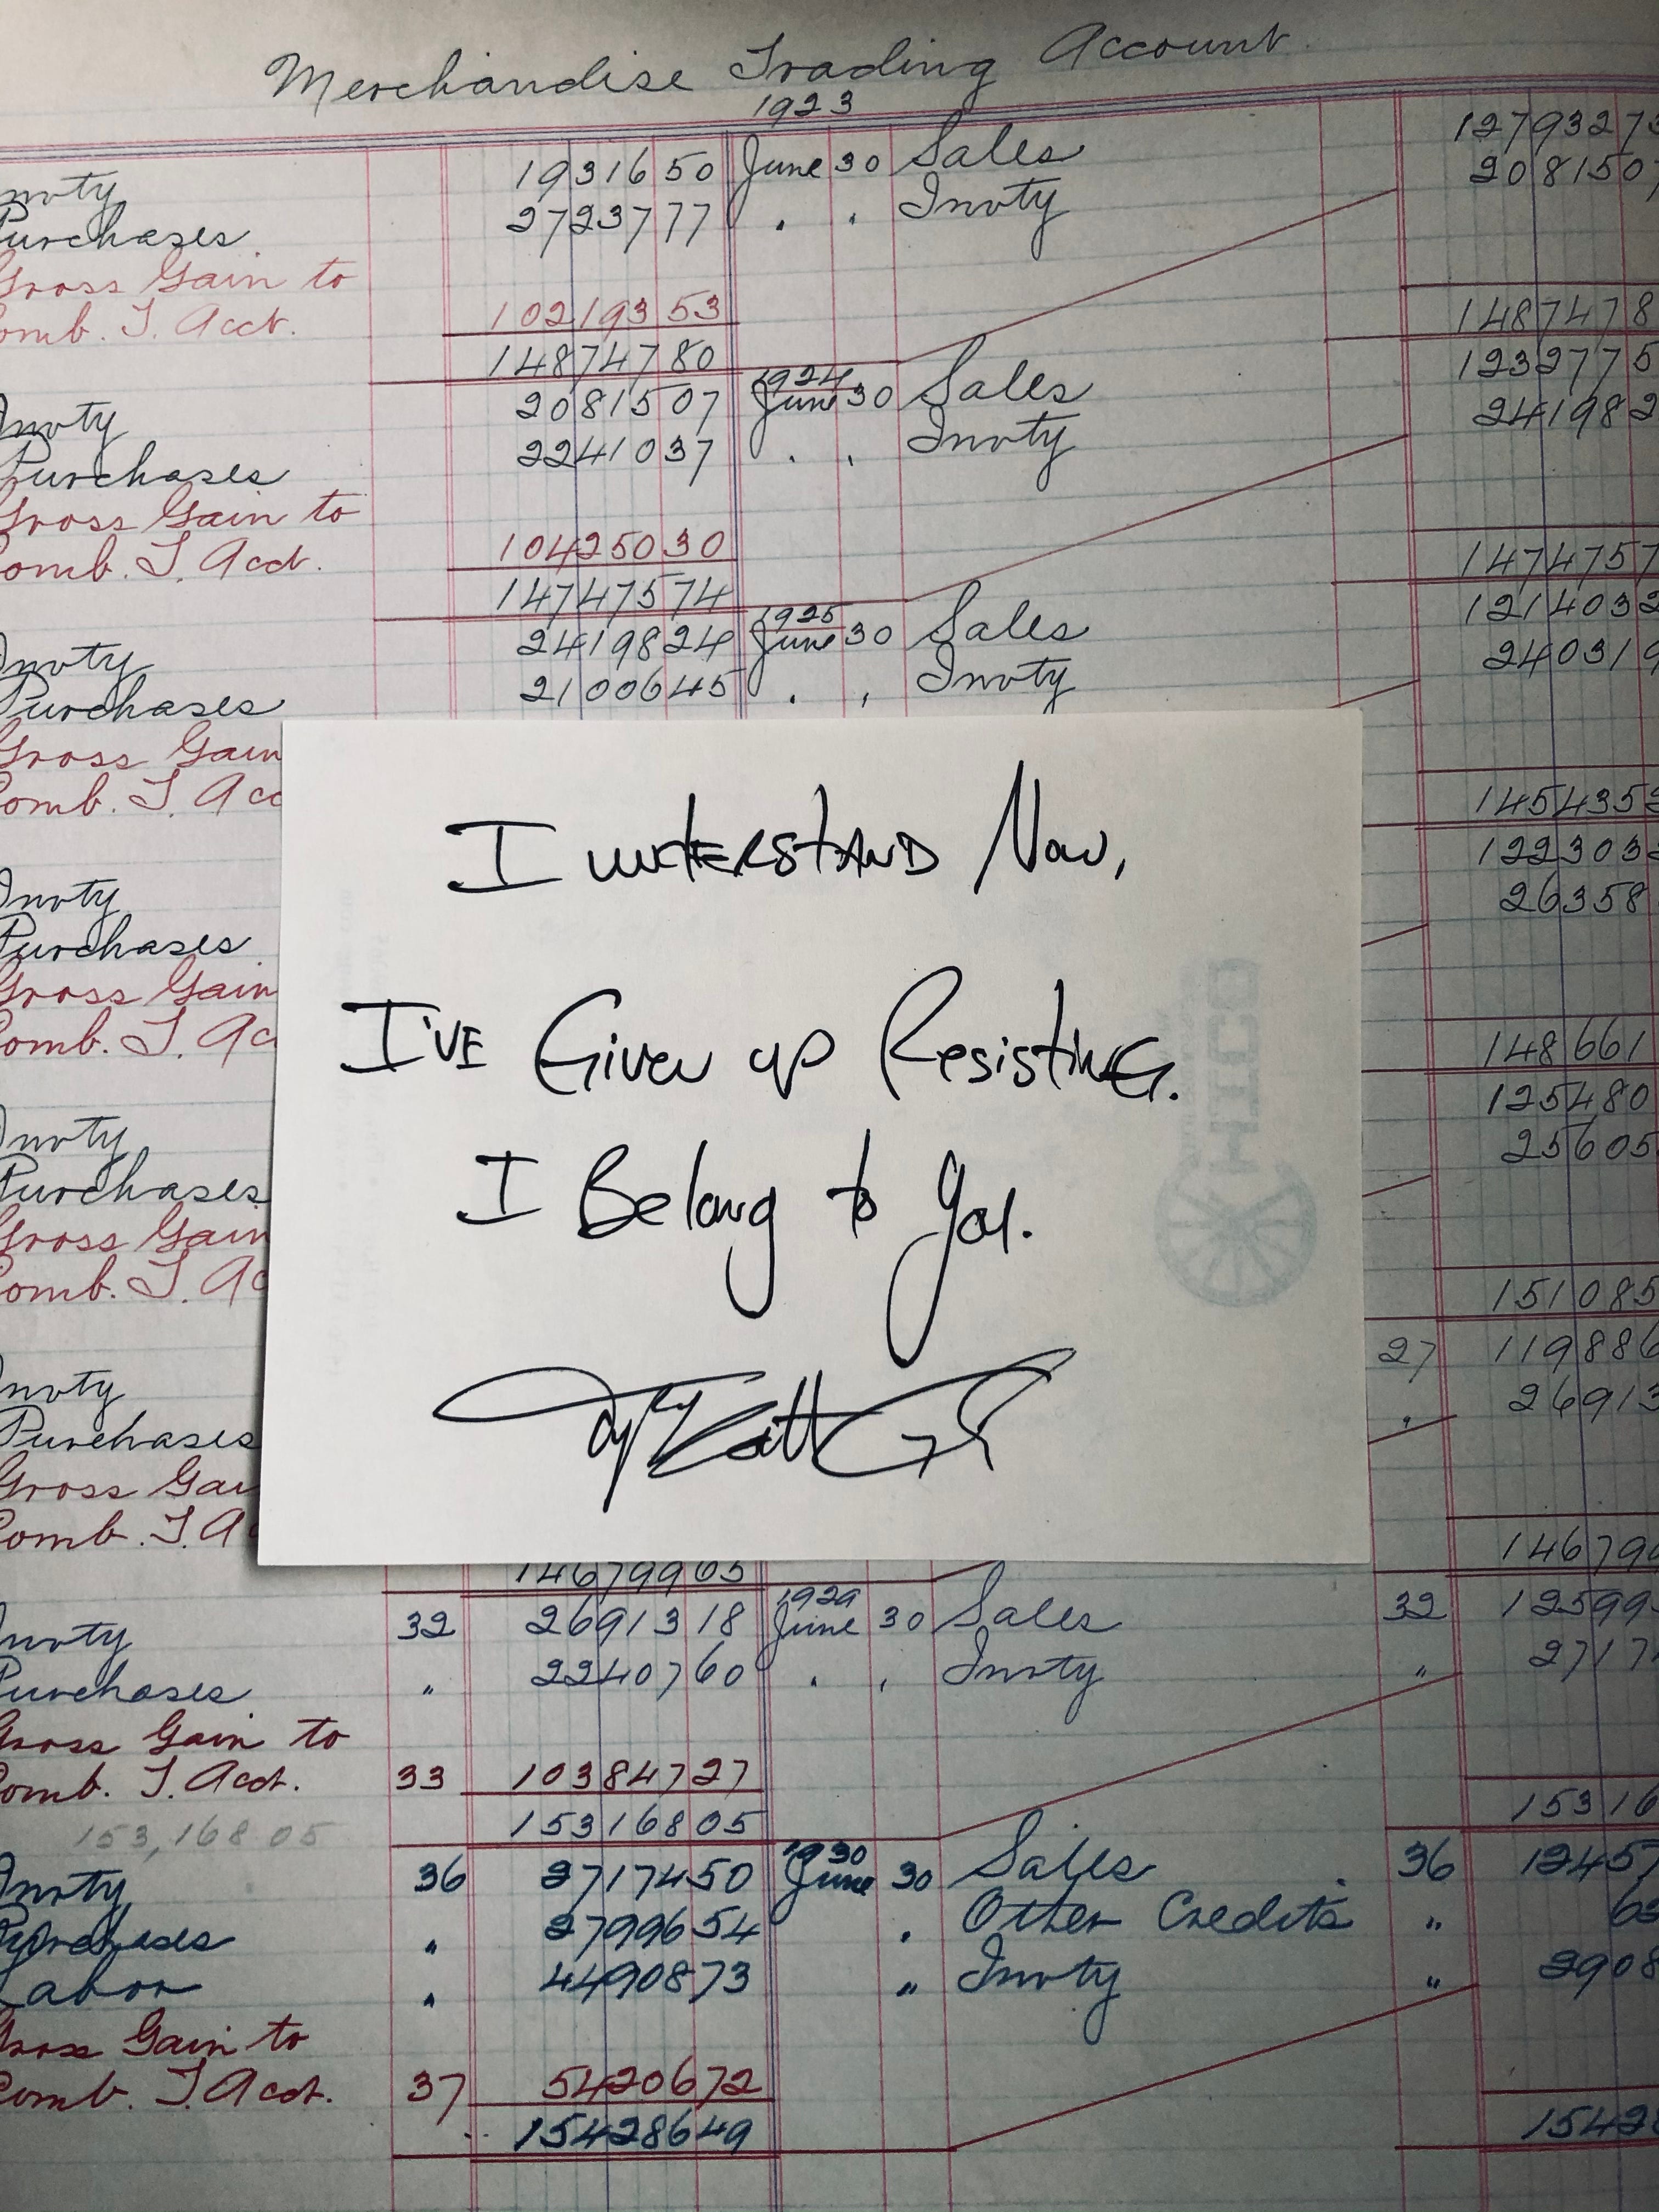 Merchandise Trading Account
1923
Invty 1931650 June 30 Sales 12793273
Purchases 2723777 . . Invty 2081507
Gross Gain to
Comb. T. Acct. 10219353
14874780 1487478
1924
Invty 2081507 June 30 Sales 1232775
Purchases 2241037 . . Invty 241982
Gross Gain to
Comb. T. Acct. 10425030
14747574 1474757
1925
Invty 2419824 June 30 Sales 1214032
Purchases 2100645 . , Invty 240319
Gross Gain
Comb. T. Acc
1454352
Invty 122303
Purchases 26358
Gross Gain
Comb. T. Ac
148661
Invty 125480
Purchases 25605
Gross Gain
Comb. T. Ac
151085
Invty 27 119886
Purchases 26913
Gross Gai
Comb. T. A
14679905 146790
I understand Now,
I've Given up Resisting.
I Belong to You.
HITCO
1929
Invty 32 2691318 June 30 Sales 32 12599
Purchases " 2240760 . , Invty " 2717
Gross Gain to
Comb. T. Acct. 33 10384727
15316805 15316
153,168 05
1930
Invty 36 2717450 June 30 Sales 36 12457
Purchases " 2799654 . Other Credits " 63
Labor " 4490873 " Invty " 2908
Gross Gain to
Comb. T. Acct. 37 5420672
15428649 15428